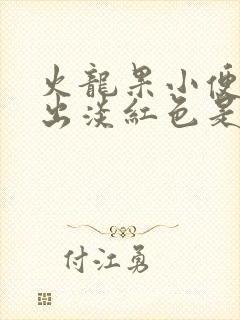 火龍果小便
出淡紅色是
付江勇